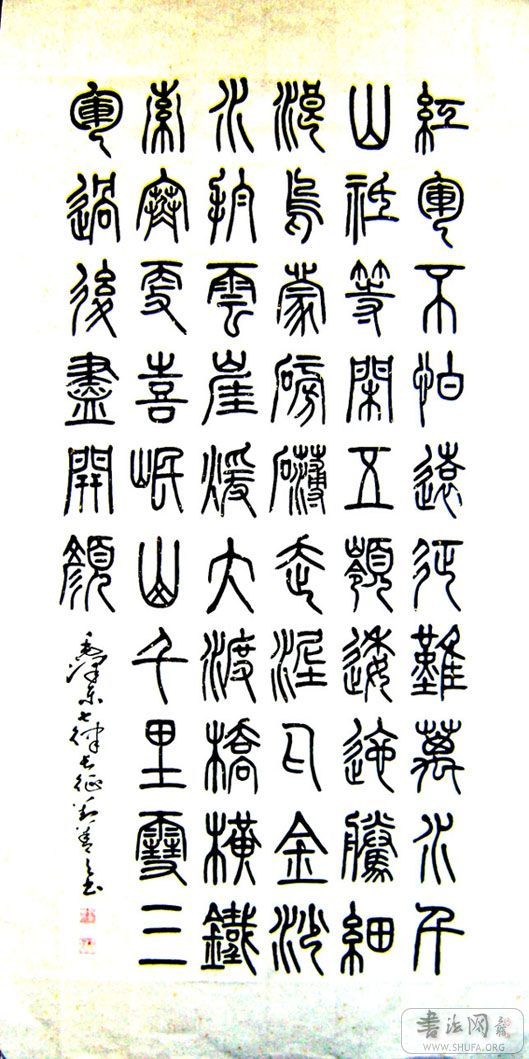 紅軍不怕遠征難萬水千
山祇等閑五嶺逶迤騰細
浪烏蒙磅礴走泥丸金沙
水拍雲崖煖大渡橋橫鐵
索寒更喜岷山千里雪三
軍過後盡開顏
毛澤東七律長征 書
書法网
WWW.SHUFA.ORG